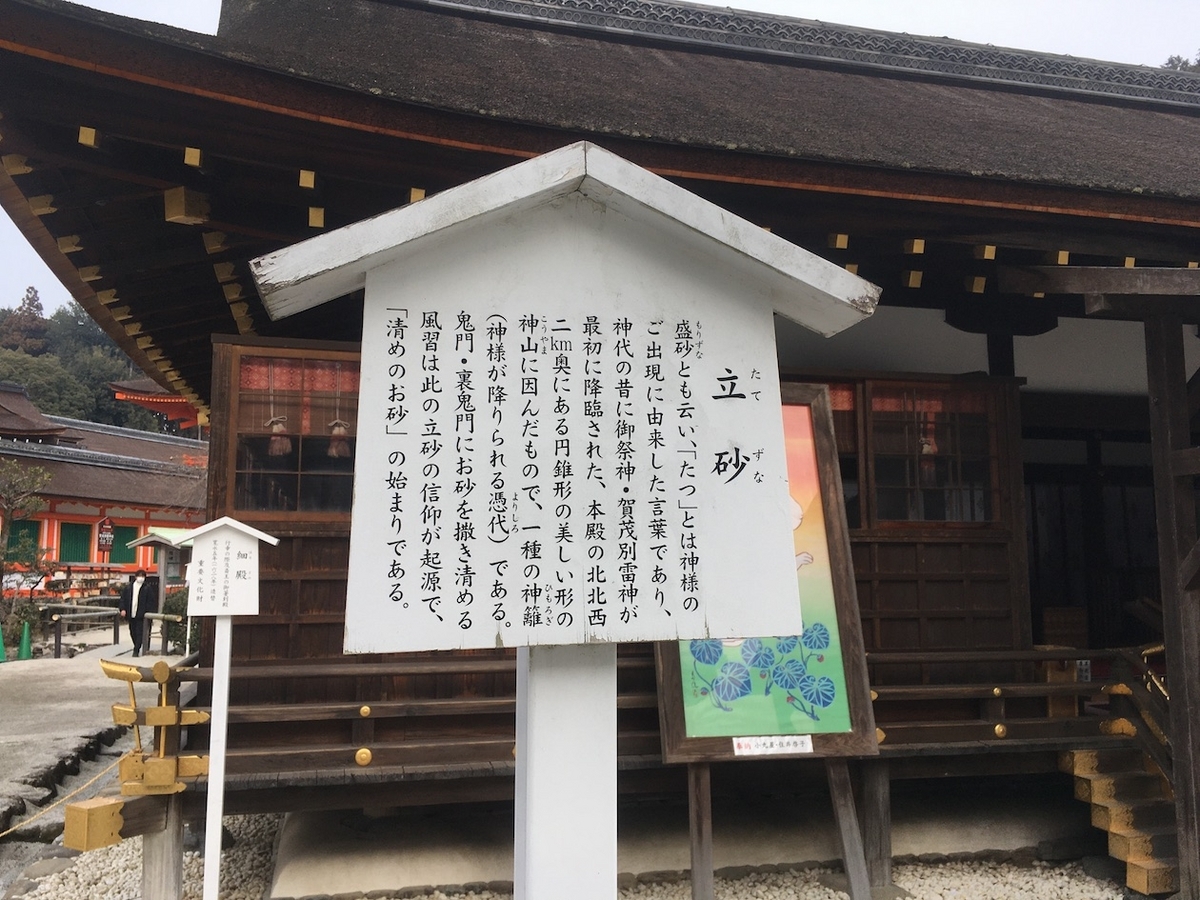 立砂
盛砂とも云い、「たつ」とは神様の
ご出現に由来した言葉であり、
神代の昔に御祭神・賀茂別雷神が
最初に降臨された、本殿の北北西
二km奥にある円錐形の美しい形の
神山に因んだもので、一種の神籬
(神様が降りられる憑代)である。
鬼門・裏鬼門にお砂を撒き清める
風習は此の立砂の信仰が起源で、
「清めのお砂」の始まりである。
たてずな
もりずな
こうやま
ひもろぎ
よりしろ
細殿
重要文化財
奉納